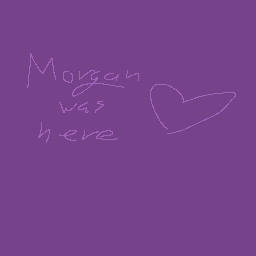 Morgan
was
here